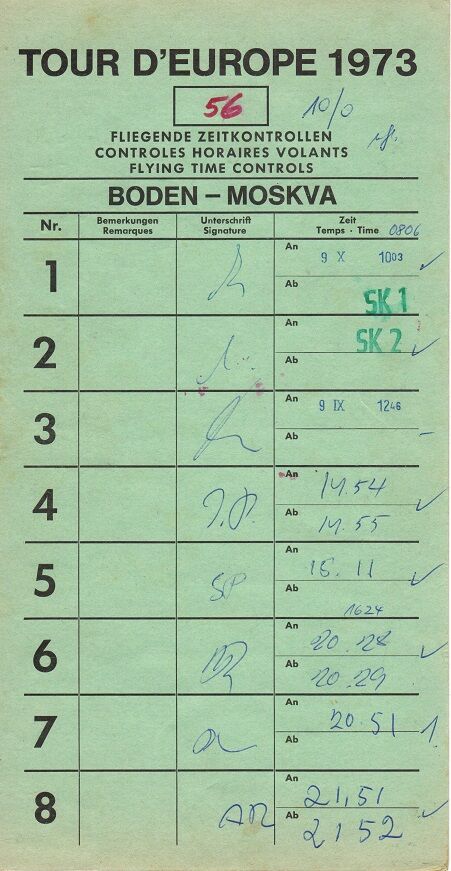 TOUR D'EUROPE 1973
56
10/0
FLIEGENDE ZEITKONTROLLEN
CONTROLES HORAIRES VOLANTS
FLYING TIME CONTROLS
BODEN – MOSKVA
Nr. Bemerkungen Remarques Unterschrift Signature Zeit Temps · Time 0806
1 An 9 X 1003
Ab SK 1
2 An SK 2
Ab
3 An 9 IX 1246
Ab
4 An 14.54
Ab 14.55
5 SP An 16.11
Ab 1624
6 An 20.28
Ab 20.29
7 An 20.51 1.
Ab
8 An 21,51
Ab 2152